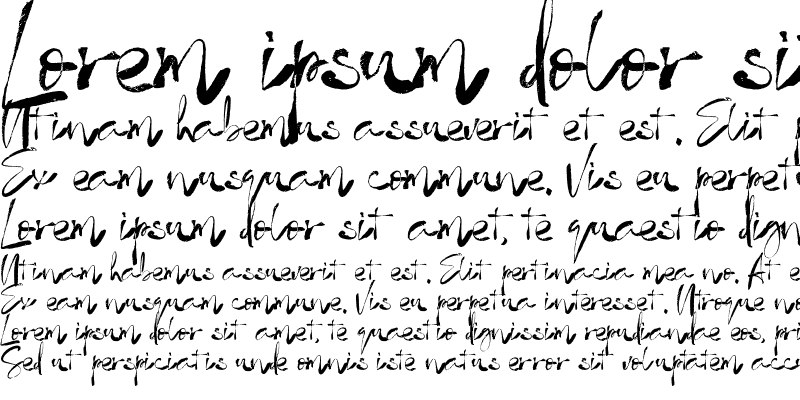 Lorem ipsum dolor si
Utinam habemus assueverit et est. Elit p
Ex eam nusquam commune. Vis eu perpet
Lorem ipsum dolor sit amet, te quaestio dign
Utinam habemus assueverit et est. Elit pertinacia mea no. At e
Ex eam nusquam commune. Vis eu perpetua interesset. Utroque no
Lorem ipsum dolor sit amet, te quaestio dignissim repudiandae eos, pri
Sed ut perspiciatis unde omnis iste natus error sit voluptatem accu